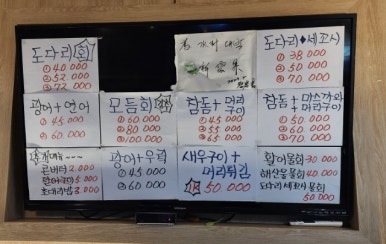 도다리 회
① 40 000
② 52 000
③ 72 000
도다리◆세꼬시
① 38 000
② 50 000
③ 70 000
광어+연어
① 45 000
② 60 000
모듬회
① 60 000
② 80 000
③ 100 000
참돔+머리구이
① 45 000
② 55 000
③ 65 000
참돔+마스까와
머리구이
① 50 000
② 60 000
③ 70 000
콘버터 2.000
초대리밥 3.000
광어+우럭
① 45 000
② 60 000
새우구이+
머리튀김
50 000
활어물회 30 000
해산물물회 40 000
도다리세꼬시물회
50 000